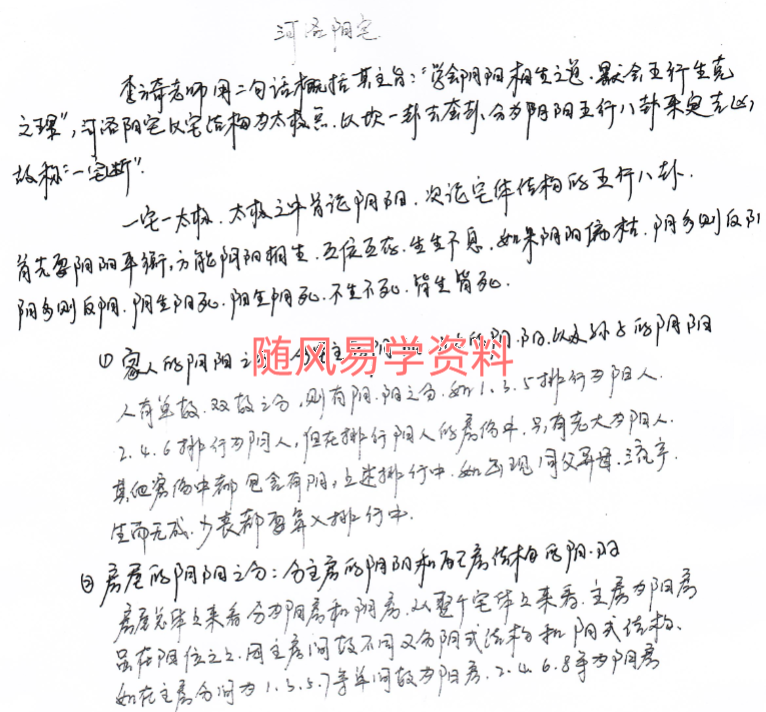 河洛阳宅
李涵奇老师用二句话概括其主旨:"学会阴阳相生之道.默会五行生克
之理",河洛阳宅以宅结构为太极点.以坎一卦去套卦.分为阴阳五行八卦来定吉凶,
故称"一宅断".
一宅一太极.太极之中首论阴阳.次论宅体结构的五行八卦.
首先要阴阳平衡,方能阴阳相生.互位互存.生生不息.如果阴阳偏枯.阴多则反阳
阳多则反阴.阴生阳死.阳生阴死.不生不死.皆生皆死.
① 家人的阴阳之分 的阴.阳.以及 的阴阳
随风易学资料
人有单数.双数之分,则有阴.阳之分.如1.3.5排行为阳人.
2.4.6排行为阴人,但在排行阳人的房份中.只有老大为阳人.
其他房份中都包含有阴,上述排行中.如出现同父异母.流产.
生而无成.少丧都要算入排行中.
② 房屋的阴阳之分:分主房的阴阳和 房结构的阴.阳
房屋总体上来看分为阳房和阴房.从整个宅体上来看.主房为阳房
虽在阳位之上.因主房间数不同又分阴式结构和阳式结构.
如在主房分间为1.3.5.7等单间数为阳房.2.4.6.8等为阴房